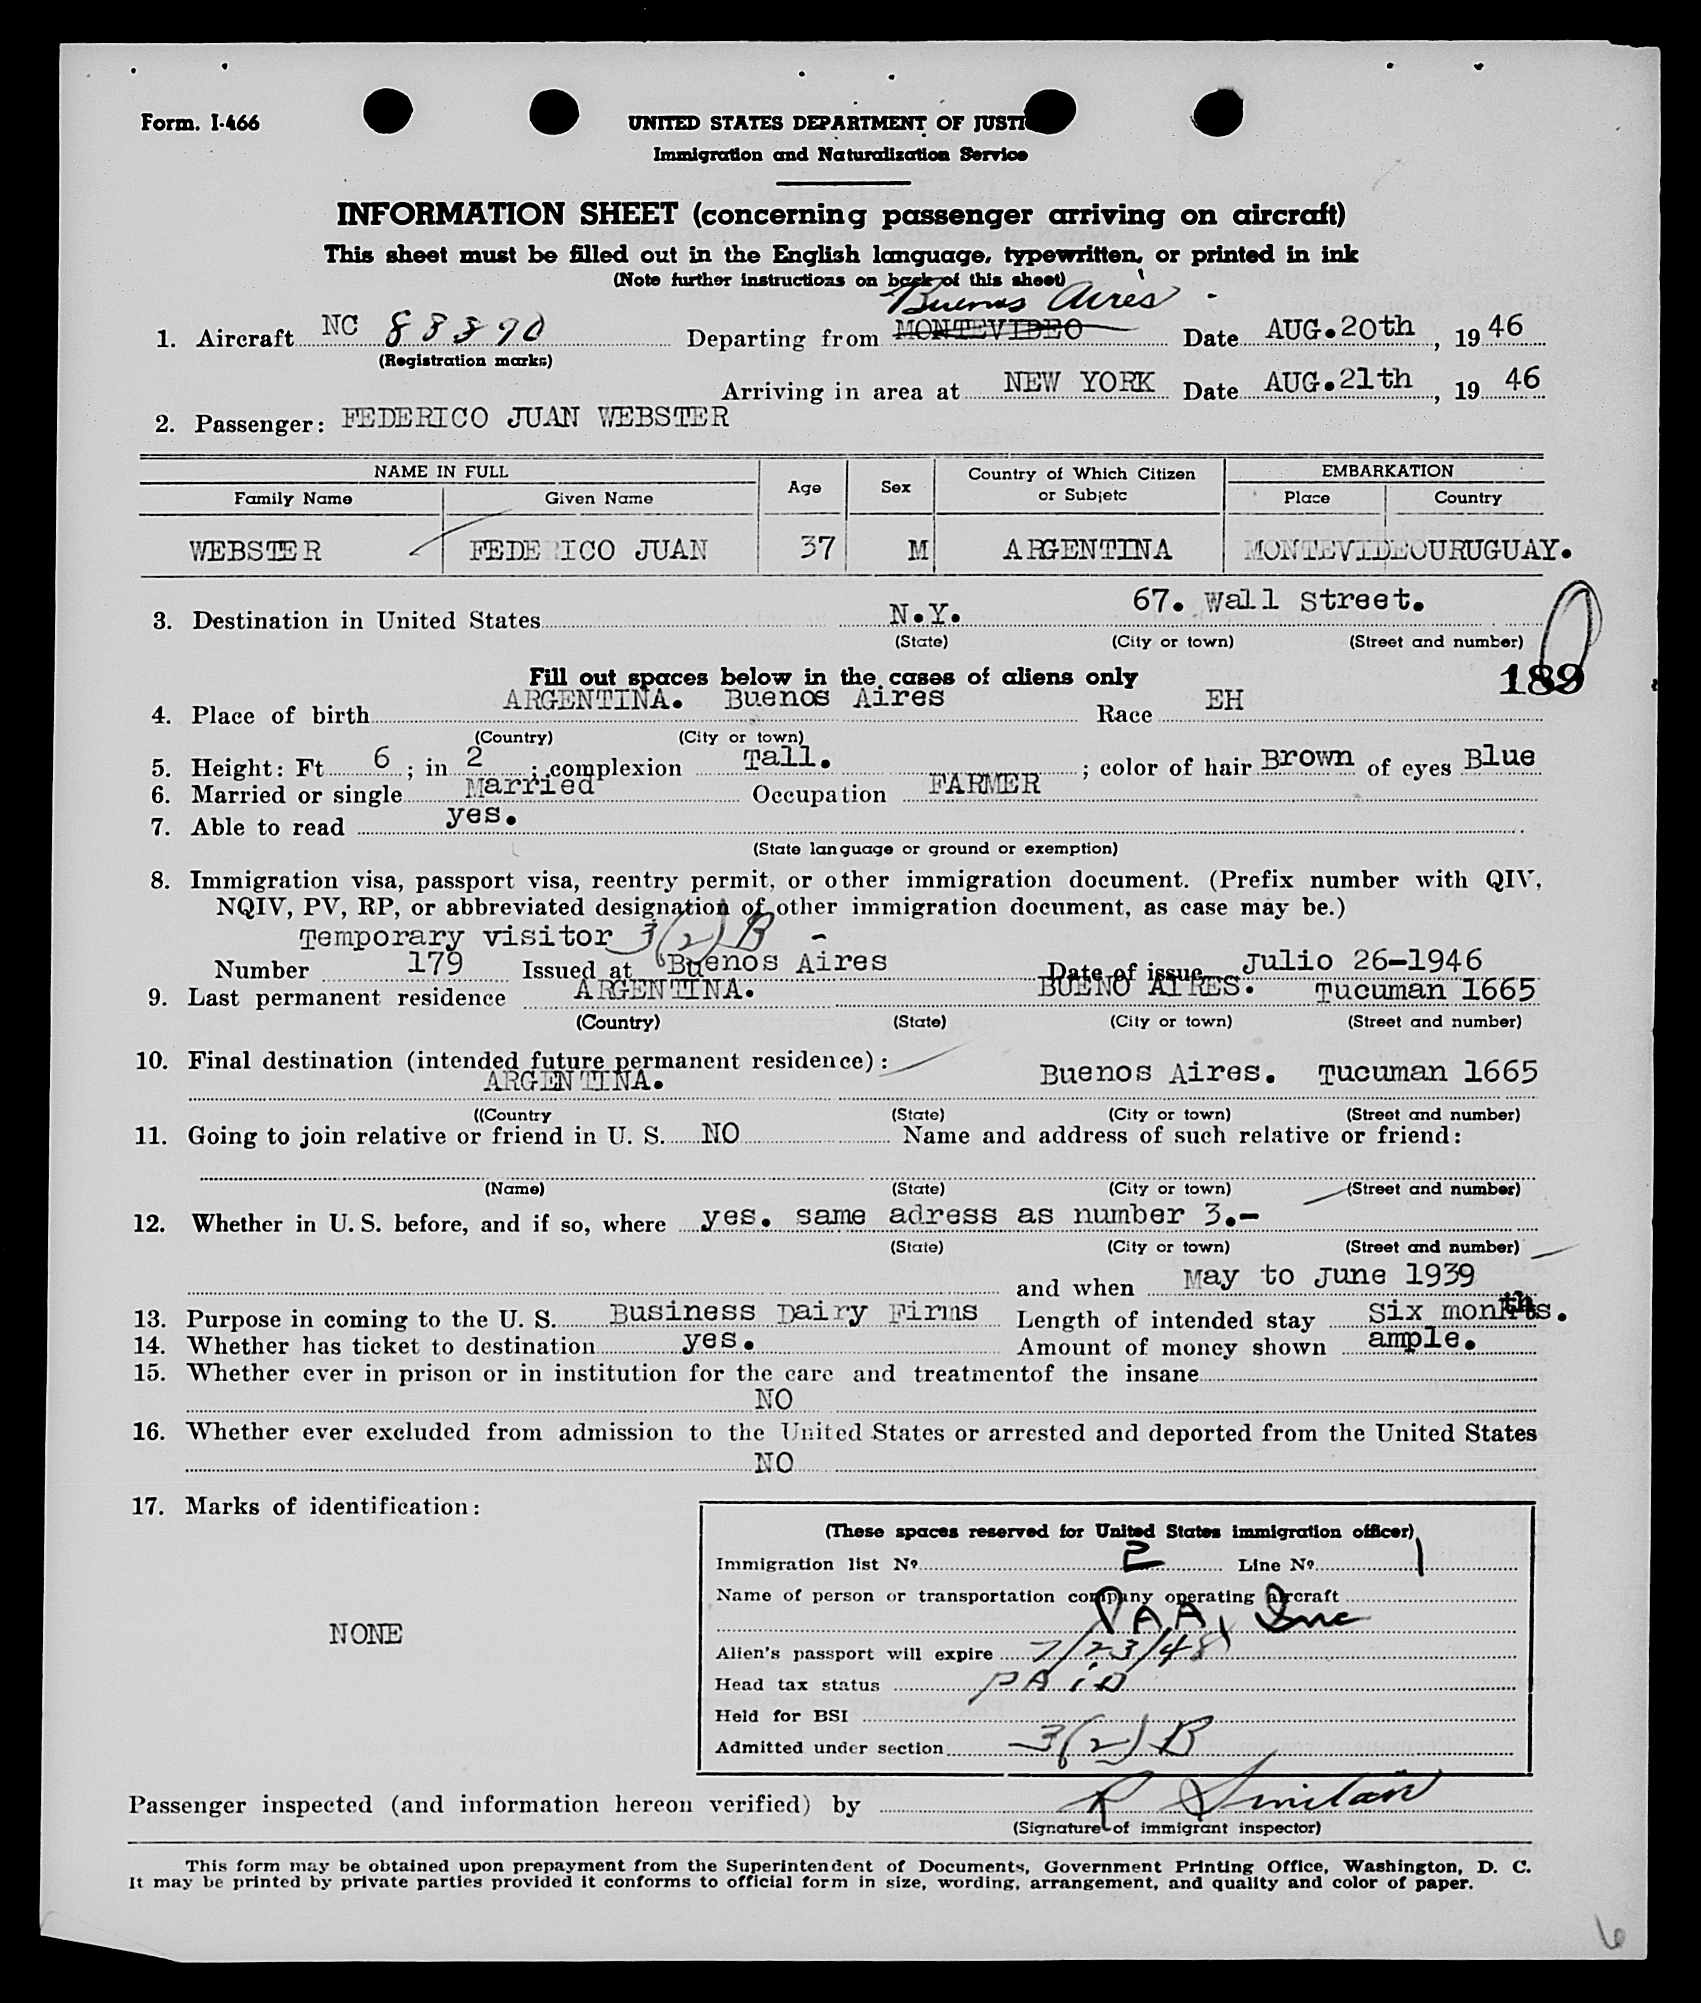 Form. I-466
UNITED STATES DEPARTMENT OF JUSTI
Immigration and Naturalization Service
INFORMATION SHEET (concerning passenger arriving on aircraft)
This sheet must be filled out in the English language, typewritten, or printed in ink
(Note further instructions on back of this sheet)
Buenos Aires
1. Aircraft NC 88890 Departing from MONTEVIDEO Date AUG.20th, 19 46
(Registration marks)
Arriving in area at NEW YORK Date AUG.21th, 19 46
2. Passenger: FEDERICO JUAN WEBSTER
NAME IN FULL Age Sex Country of Which Citizen or Subjetc EMBARKATION
Family Name Given Name Place Country
WEBSTER FEDE ICO JUAN 37 M ARGENTINA MONTEVIDEO URUGUAY.
3. Destination in United States N.Y. 67. Wall Street.
(State) (City or town) (Street and number)
189
Fill out spaces below in the cases of aliens only
4. Place of birth ARGENTINA. Buenos Aires Race EH
(Country) (City or town)
5. Height: Ft 6 ; in 2 ; complexion Tall. ; color of hair Brown of eyes Blue
6. Married or single Married Occupation FARMER
7. Able to read yes.
(State language or ground or exemption)
8. Immigration visa, passport visa, reentry permit, or other immigration document. (Prefix number with QIV,
NQIV, PV, RP, or abbreviated designation of other immigration document, as case may be.)
Temporary visitor 3(2)B -
Number 179 Issued at Buenos Aires Date of issue Julio 26-1946
9. Last permanent residence ARGENTINA. BUENO AIRES. Tucuman 1665
(Country) (State) (City or town) (Street and number)
10. Final destination (intended future permanent residence):
ARGENTINA. Buenos Aires. Tucuman 1665
((Country (State) (City or town) (Street and number)
11. Going to join relative or friend in U. S. NO Name and address of such relative or friend:
(Name) (State) (City or town) (Street and number)
12. Whether in U. S. before, and if so, where yes. same adress as number 3.-
(State) (City or town) (Street and number)
and when May to June 1939
13. Purpose in coming to the U. S. Business Dairy Firms Length of intended stay Six months.
14. Whether has ticket to destination yes. Amount of money shown ample.
15. Whether ever in prison or in institution for the care and treatmentof the insane
NO
16. Whether ever excluded from admission to the United States or arrested and deported from the United States
NO
17. Marks of identification:
NONE
(These spaces reserved for United States immigration officer)
Immigration list Nº 2 Line Nº 1
Name of person or transportation company operating aircraft
PAA, Inc
Alien's passport will expire 7/23/48
Head tax status PAiD
Held for BSI
Admitted under section 3(2)B
Passenger inspected (and information hereon verified) by R
(Signature of immigrant inspector)
This form may be obtained upon prepayment from the Superintendent of Documents, Government Printing Office, Washington, D. C.
It may be printed by private parties provided it conforms to official form in size, wording, arrangement, and quality and color of paper.
6